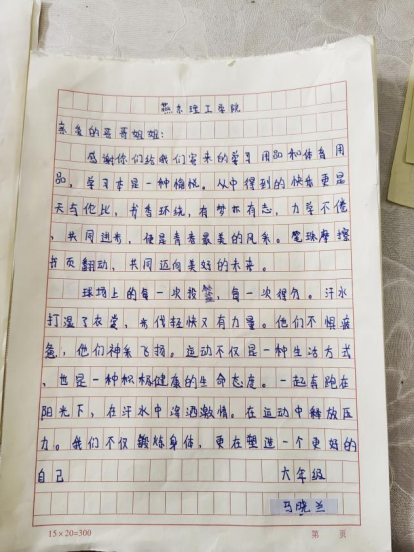 燕京理工学院
亲爱的哥哥姐姐:
感谢你们给我们寄来的学习用品和体育用
品,学习本是一种愉悦。从中得到的快乐更是
天与伦比,书香环绕,有梦亦有志,力学不倦
、共同进步,便是青春最美的风采。笔珠摩擦
书页翻动,共同迈向美好的未来。
球场上的每一次投篮,每一次得分。汗水
打湿了衣裳,步伐轻快又有力量。他们不惧疲
惫,他们神采飞扬。运动不仅是一种生活方式
、也是一种积极健康的生命态度。一起奔跑在
阳光下,在汗水中挥洒激情。在运动中释放压
力。我们不仅锻炼身体,更在塑造一个更好的
自己
六年级
马晓兰
15×20=300
第 页